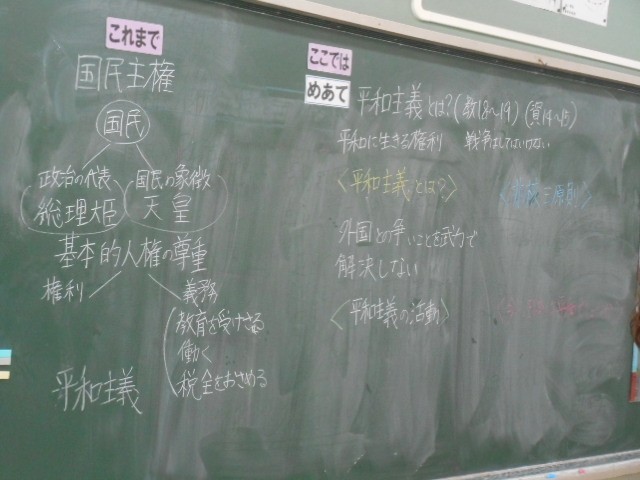 これまで
国民主権
国民
政治の代表 国民の象徴
総理大臣 天皇
基本的人権の尊重
権利 義務
教育を受けさせる
働く
税金をおさめる
平和主義
ここでは
めあて
平和主義とは?(教18〜19)(資14〜15)
平和に生きる権利 戦争はしてはいけない
〈平和主義とは?〉
〈非核三原則〉
外国との争いごとを武力で
解決しない
〈平和主義の活動〉